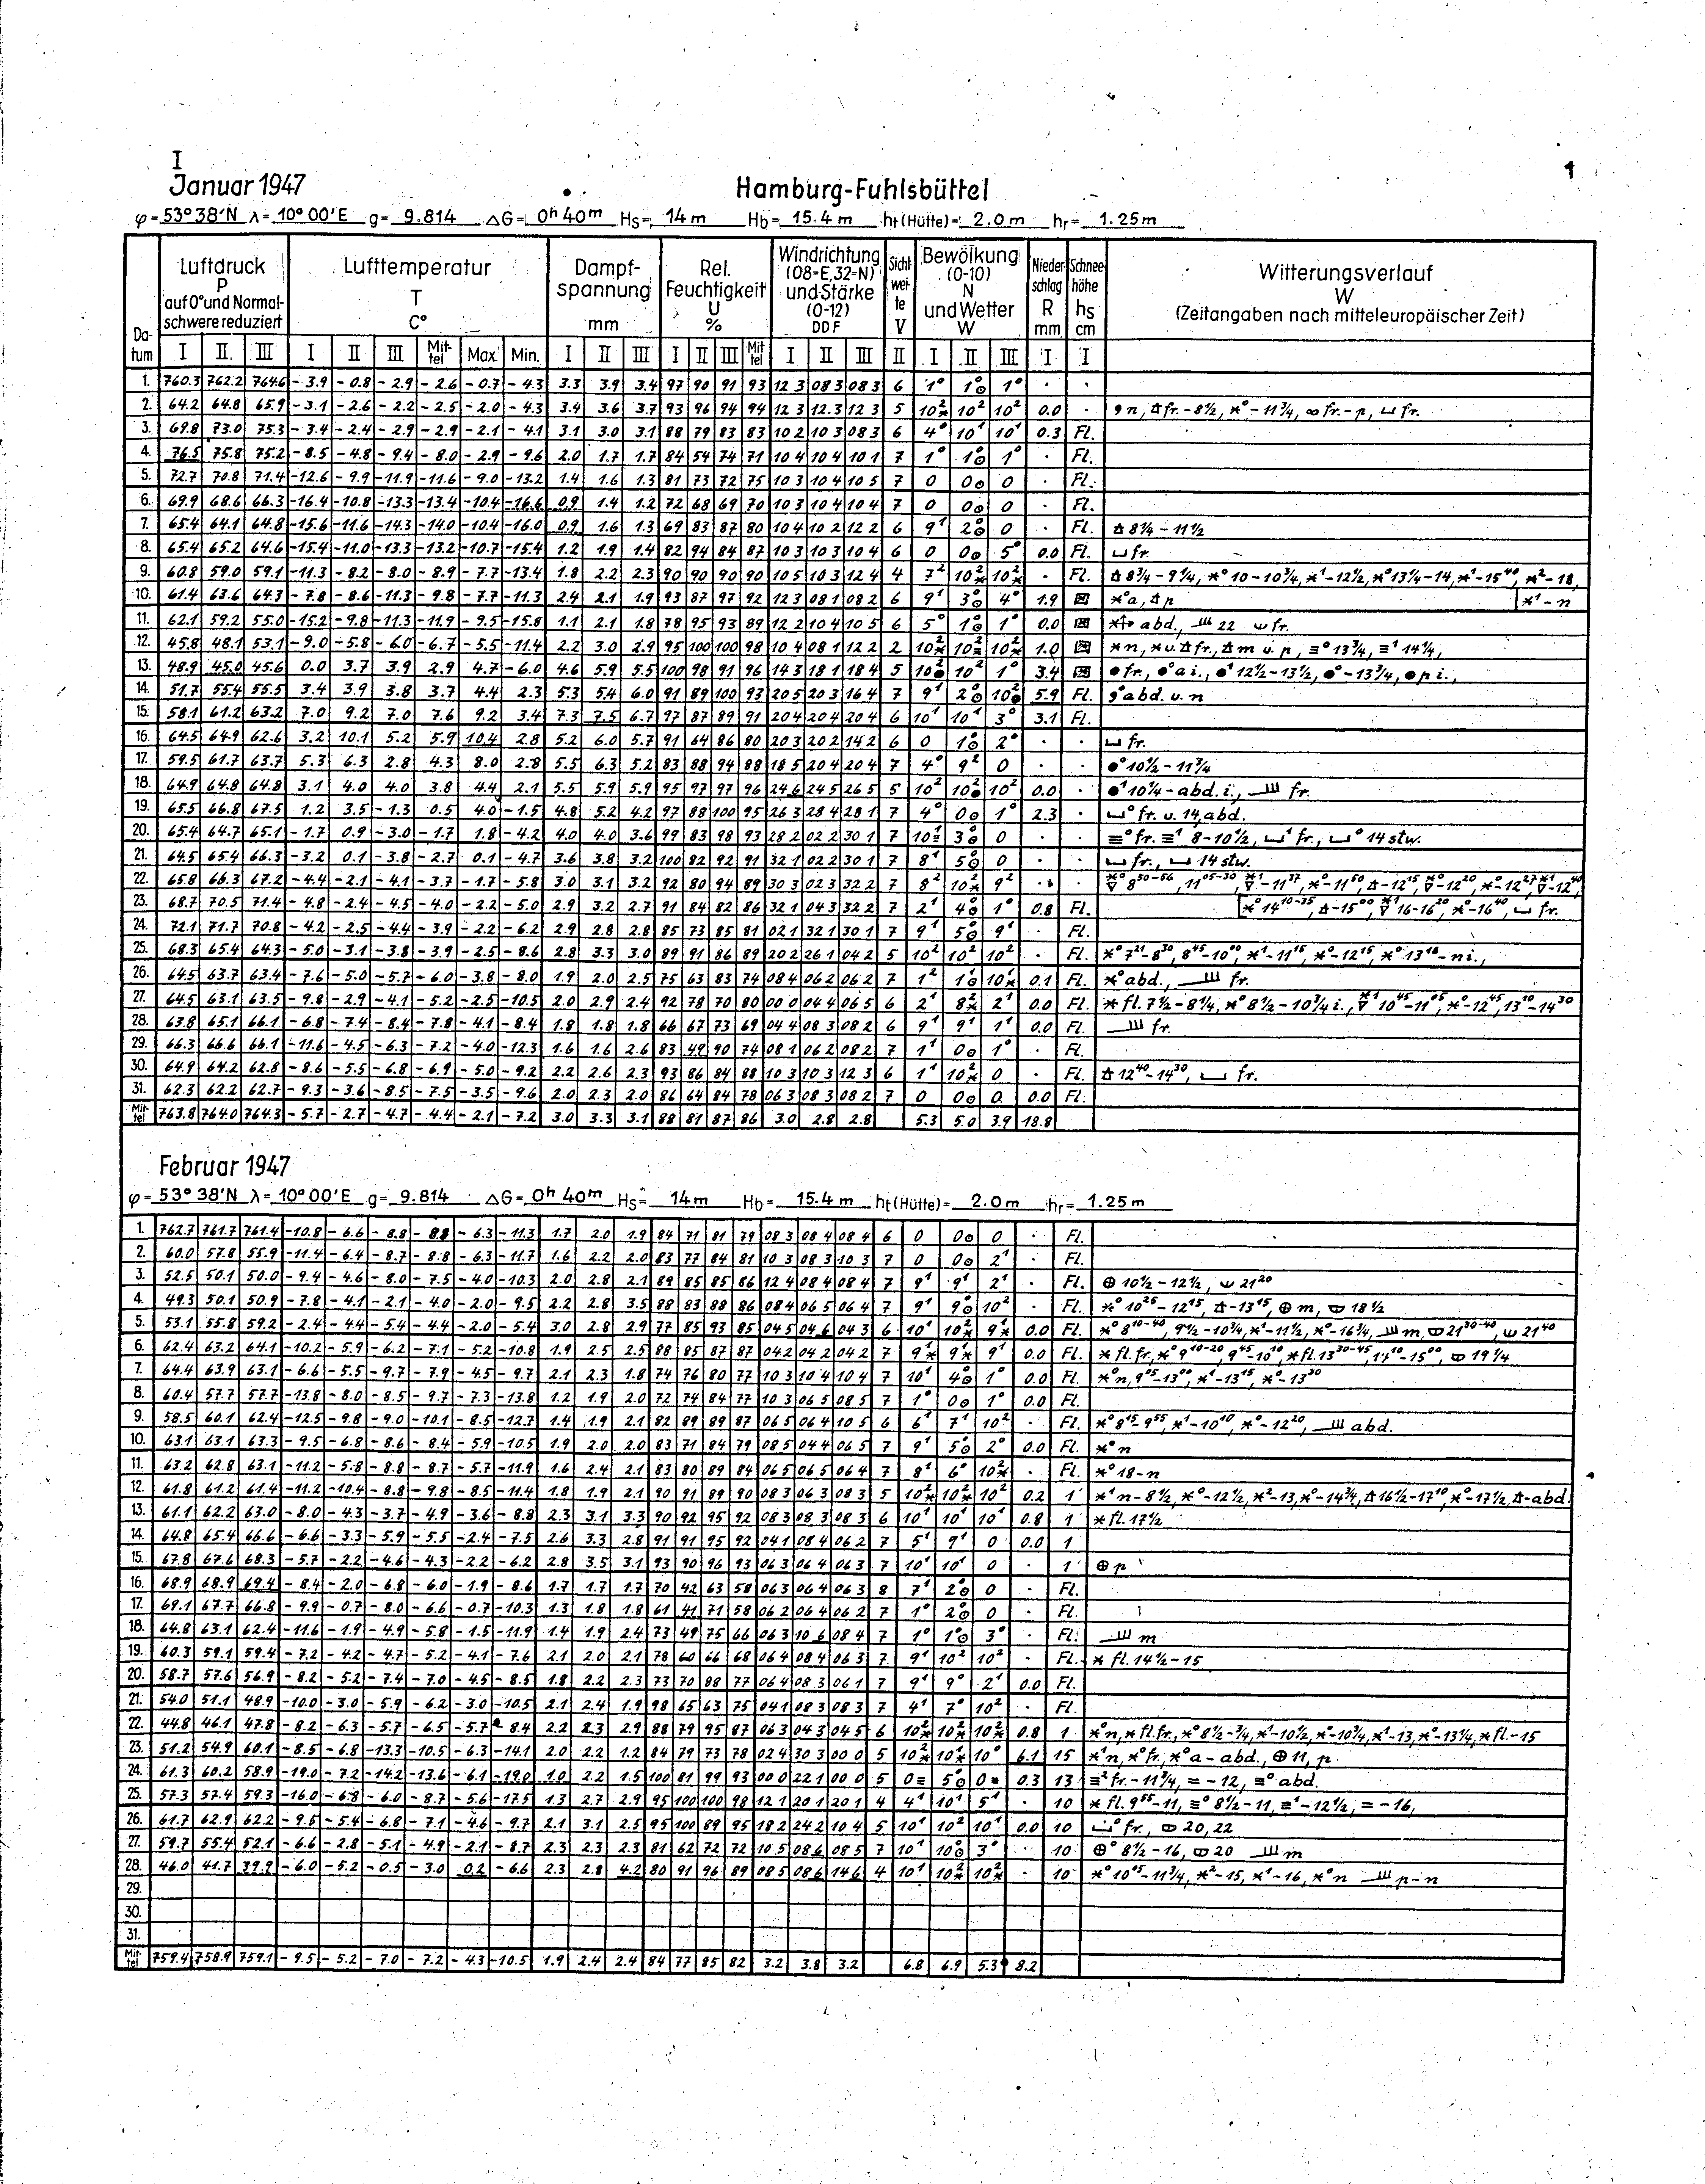 I
1
Januar 1947
Hamburg-Fuhlsbüttel
φ = 53° 38'N λ = 10° 00'E g = 9.814 △G = 0ʰ 40ᵐ Hs = 14 m Hb = 15.4 m ht (Hütte) = 2.0 m hr = 1.25 m
Da-tum Luftdruck P auf 0° und Normal-schwere reduziert Lufttemperatur T C° Dampf-spannung mm Rel. Feuchtigkeit U % Windrichtung (08=E, 32=N) und Stärke (0-12) DD F Sicht-wei-te V Bewölkung (0-10) N und Wetter W Nieder-schlag R mm Schnee-höhe hs cm Witterungsverlauf W (Zeitangaben nach mitteleuropäischer Zeit)
I II III I II III Mit-tel Max. Min. I II III I II III Mit-tel I II III II I II III I I
1. 760.3 762.2 764.6 -3.9 -0.8 -2.9 -2.6 -0.7 -4.3 3.3 3.9 3.4 97 90 91 93 12 3 08 3 08 3 6 1⁰ 1⁰ 1⁰ . .
2. 64.2 64.8 65.9 -3.1 -2.6 -2.2 -2.5 -2.0 -4.3 3.4 3.6 3.7 93 96 94 94 12 3 12.3 12 3 5 10² 10² 10² 0.0 .
3. 69.8 73.0 75.3 -3.4 -2.4 -2.9 -2.9 -2.1 -4.1 3.1 3.0 3.1 88 79 83 83 10 2 10 3 08 3 6 4⁰ 10¹ 10¹ 0.3 Fl.
4. 76.5 75.8 75.2 -8.5 -4.8 -9.4 -8.0 -2.9 -9.6 2.0 1.7 1.7 84 54 74 71 10 4 10 4 10 1 7 1⁰ 1⁰ 1⁰ . Fl.
5. 72.7 70.8 71.4 -12.6 -9.9 -11.9 -11.6 -9.0 -13.2 1.4 1.6 1.3 81 73 72 75 10 3 10 4 10 5 7 0 0⊙ 0 . Fl.
6. 69.9 68.6 66.3 -16.4 -10.8 -13.3 -13.4 -10.4 -16.6 0.9 1.4 1.2 72 68 69 70 10 3 10 4 10 4 7 0 0⊙ 0 . Fl.
7. 65.4 64.1 64.8 -15.6 -11.6 -14.3 -14.0 -10.4 -16.0 0.9 1.6 1.3 69 83 87 80 10 4 10 2 12 2 6 9¹ 2⁰ 0 . Fl. 8¼ - 11½
8. 65.4 65.2 64.6 -15.4 -11.0 -13.3 -13.2 -10.7 -15.4 1.2 1.9 1.4 82 94 84 87 10 3 10 3 10 4 6 0 0⊙ 5⁰ 0.0 Fl. ⌴ fr.
9. 60.8 59.0 59.1 -11.3 -8.2 -8.0 -8.9 -7.7 -13.4 1.8 2.2 2.3 90 90 90 90 10 5 10 3 12 4 4 7² 10² 10² . Fl. 8¾ - 9¼, *⁰ 10 - 10¾, *¹ - 12½, *⁰ 13¼ - 14, *¹ - 15⁴⁰, *² - 18,
10. 61.4 63.6 64.3 -7.8 -8.6 -11.3 -9.8 -7.7 -11.3 2.4 2.1 1.9 93 87 97 92 12 3 08 1 08 2 6 9¹ 3⁰ 4⁰ 1.9 *⁰ a, p [*¹ - n
11. 62.1 59.2 55.0 -15.2 -9.8 -11.3 -11.9 -9.5 -15.8 1.1 2.1 1.8 78 95 93 89 12 2 10 4 10 5 6 5⁰ 1⁰ 1⁰ 0.0 abd., 22 fr.
12. 45.8 48.1 53.1 -9.0 -5.8 -6.0 -6.7 -5.5 -11.4 2.2 3.0 2.9 95 100 100 98 10 4 08 1 12 2 2 10² 10² 10² 1.0 * n, * u. fr., m u. p, ≡⁰ 13¾, ≡¹ 14¼,
13. 48.9 45.0 45.6 0.0 3.7 3.9 2.9 4.7 -6.0 4.6 5.9 5.5 100 98 91 96 14 3 18 1 18 4 5 10² 10² 1⁰ 3.4 ● fr., ●⁰ a i., ●¹ 12½ - 13½, ●⁰ - 13¾, ● p i.,
14. 51.7 55.4 55.5 3.4 3.9 3.8 3.7 4.4 2.3 5.3 5.4 6.0 91 89 100 93 20 5 20 3 16 4 7 9¹ 2⁰ 10² 5.9 Fl. abd. u. n
15. 58.1 61.2 63.2 7.0 9.2 7.0 7.6 9.2 3.4 7.3 7.5 6.7 97 87 89 91 20 4 20 4 20 4 6 10¹ 10¹ 3⁰ 3.1 Fl.
16. 64.5 64.9 62.6 3.2 10.1 5.2 5.9 10.4 2.8 5.2 6.0 5.7 91 64 86 80 20 3 20 2 14 2 6 0 1⁰ 2⁰ . . ⌴ fr.
17. 59.5 61.7 63.7 5.3 6.3 2.8 4.3 8.0 2.8 5.5 6.3 5.2 83 88 94 88 18 5 20 4 20 4 7 4⁰ 9² 0 . . ●⁰ 10½ - 11¾
18. 64.9 64.8 64.8 3.1 4.0 4.0 3.8 4.4 2.1 5.5 5.9 5.9 95 97 97 96 24 6 24 5 26 5 5 10² 10² 10² 0.0 . ●¹ 10¼ - abd. i., fr.
19. 65.5 66.8 67.5 1.2 3.5 -1.3 0.5 4.0 -1.5 4.8 5.2 4.2 97 88 100 95 26 3 28 4 28 1 7 4⁰ 0⊙ 1⁰ 2.3 . ⌴⁰ fr. u. 14, abd.
20. 65.4 64.7 65.1 -1.7 0.9 -3.0 -1.7 1.8 -4.2 4.0 4.0 3.6 99 83 98 93 28 2 02 2 30 1 7 10¹ 3⁰ 0 . . ≡⁰ fr. ≡¹ 8 - 10½, ⌴¹ fr., ⌴⁰ 14 stw.
21. 64.5 65.4 66.3 -3.2 0.1 -3.8 -2.7 0.1 -4.7 3.6 3.8 3.2 100 82 92 91 32 1 02 2 30 1 7 8¹ 5⁰ 0 . . ⌴ fr., ⌴ 14 stw.
22. 65.8 66.3 67.2 -4.4 -2.1 -4.1 -3.7 -1.7 -5.8 3.0 3.1 3.2 92 80 94 89 30 3 02 3 32 2 7 8² 10² 9² . . 8⁵⁰⁻⁵⁶, 11⁰⁵⁻³⁰, - 11³⁷, *⁰ - 11⁵⁰, - 12¹⁵, - 12²⁰, *⁰ - 12²⁷, - 12⁴⁰
23. 68.7 70.5 71.4 -4.8 -2.4 -4.5 -4.0 -2.2 -5.0 2.9 3.2 2.7 91 84 82 86 32 1 04 3 32 2 7 2¹ 4⁰ 1⁰ 0.8 Fl. [*⁰ 14¹⁰⁻³⁵, - 15⁰⁰, 16 - 16²⁰, *⁰ - 16⁴⁰, ⌴ fr.
24. 72.1 71.7 70.8 -4.2 -2.5 -4.4 -3.9 -2.2 -6.2 2.9 2.8 2.8 85 73 85 81 02 1 32 1 30 1 7 9¹ 5⁰ 9¹ . Fl.
25. 68.3 65.4 64.3 -5.0 -3.1 -3.8 -3.9 -2.5 -8.6 2.8 3.3 3.0 89 91 86 89 20 2 26 1 04 2 5 10² 10² 10² . Fl. *⁰ 7²¹ - 8³⁰, 8⁴⁵ - 10⁰⁰, *¹ - 11¹⁵, *⁰ - 12¹⁵, *⁰ 13¹⁸ - n i.,
26. 64.5 63.7 63.4 -7.6 -5.0 -5.7 -6.0 -3.8 -8.0 1.9 2.0 2.5 75 63 83 74 08 4 06 2 06 2 7 1² 1⁰ 10¹ 0.1 Fl. *⁰ abd., fr.
27. 64.5 63.1 63.5 -9.8 -2.9 -4.1 -5.2 -2.5 -10.5 2.0 2.9 2.4 92 78 70 80 00 0 04 4 06 5 6 2¹ 8² 2¹ 0.0 Fl. * fl. 7½ - 8¼, *⁰ 8½ - 10¾ i., 10⁴⁵ - 11⁰⁵, *⁰ - 12⁴⁵, 13¹⁰ - 14³⁰
28. 63.8 65.1 66.1 -6.8 -7.4 -8.4 -7.8 -4.1 -8.4 1.8 1.8 1.8 66 67 73 69 04 4 08 3 08 2 6 9¹ 9¹ 1¹ 0.0 Fl. fr.
29. 66.3 66.6 66.1 -11.6 -4.5 -6.3 -7.2 -4.0 -12.3 1.6 1.6 2.6 83 49 90 74 08 1 06 2 08 2 7 1¹ 0⊙ 1⁰ . Fl.
30. 64.9 64.2 62.8 -8.6 -5.5 -6.8 -6.9 -5.0 -9.2 2.2 2.6 2.3 93 86 84 88 10 3 10 3 12 3 6 1¹ 10² 0 . Fl. 12⁴⁰ - 14³⁰, ⌴ fr.
31. 62.3 62.2 62.7 -9.3 -3.6 -8.5 -7.5 -3.5 -9.6 2.0 2.3 2.0 86 64 84 78 06 3 08 3 08 2 7 0 0⊙ 0 0.0 Fl.
Mit-tel 763.8 764.0 764.3 -5.7 -2.7 -4.7 -4.4 -2.1 -7.2 3.0 3.3 3.1 88 81 87 86 3.0 2.8 2.8 5.3 5.0 3.9 18.8
Februar 1947
φ = 53° 38'N λ = 10° 00'E g = 9.814 △G = 0ʰ 40ᵐ Hs = 14 m Hb = 15.4 m ht (Hütte) = 2.0 m hr = 1.25 m
1. 762.7 761.7 761.4 -10.8 -6.6 -8.8 -8.8 -6.3 -11.3 1.7 2.0 1.9 84 71 81 79 08 3 08 4 08 4 6 0 0⊙ 0 . Fl.
2. 60.0 57.8 55.9 -11.4 -6.4 -8.7 -8.8 -6.3 -11.7 1.6 2.2 2.0 83 77 84 81 10 3 08 3 10 3 7 0 0⊙ 2¹ . Fl.
3. 52.5 50.1 50.0 -9.4 -4.6 -8.0 -7.5 -4.0 -10.3 2.0 2.8 2.1 89 85 85 86 12 4 08 4 08 4 7 9¹ 9¹ 2¹ . Fl. ⊕ 10½ - 12½, 21²⁰
4. 49.3 50.1 50.9 -7.8 -4.1 -2.1 -4.0 -2.0 -9.5 2.2 2.8 3.5 88 83 88 86 08 4 06 5 06 4 7 9¹ 9⁰ 10² . Fl. *⁰ 10²⁵ - 12¹⁵, - 13¹⁵, ⊕ m, 18½
5. 53.1 55.8 59.2 -2.4 -4.4 -5.4 -4.4 -2.0 -5.4 3.0 2.8 2.9 77 85 93 85 04 5 04 6 04 3 6 10¹ 10² 9¹ 0.0 Fl. *⁰ 8¹⁰⁻⁴⁰, 9½ - 10¾, *¹ - 11½, *⁰ - 16¾, m, 21³⁰⁻⁴⁰, 21⁴⁰
6. 62.4 63.2 64.1 -10.2 -5.9 -6.2 -7.1 -5.2 -10.8 1.9 2.5 2.5 88 85 87 87 04 2 04 2 04 2 7 9¹ 9¹ 9¹ 0.0 Fl. * fl. fr., *⁰ 9¹⁰⁻²⁰, 9⁴⁵ - 10¹⁰, * fl. 13³⁰⁻⁴⁵, - 15⁰⁰, 19¼
7. 64.4 63.9 63.1 -6.6 -5.5 -9.7 -7.9 -4.5 -9.7 2.1 2.3 1.8 74 76 80 77 10 3 10 4 10 4 7 10¹ 4⁰ 1⁰ 0.0 Fl. *⁰ n, 9⁰⁵ - 13⁰⁰, *¹ - 13¹⁵, *⁰ - 13³⁰
8. 60.4 57.7 57.7 -13.8 -8.0 -8.5 -9.7 -7.3 -13.8 1.2 1.9 2.0 72 74 84 77 10 3 06 5 08 5 7 1⁰ 0⊙ 1⁰ 0.0 Fl.
9. 58.5 60.1 62.4 -12.5 -9.8 -9.0 -10.1 -8.5 -12.7 1.4 1.9 2.1 82 89 89 87 06 5 06 4 10 5 6 6¹ 7¹ 10² . Fl. *⁰ 8¹⁵ - 9⁵⁵, *¹ - 10¹⁰, *⁰ - 12²⁰, abd.
10. 63.1 63.1 63.3 -9.5 -6.8 -8.6 -8.4 -5.9 -10.5 1.9 2.0 2.0 83 71 84 79 08 5 04 4 06 5 7 9¹ 5⁰ 2⁰ 0.0 Fl. *⁰ n
11. 63.2 62.8 63.1 -11.2 -5.8 -8.8 -8.7 -5.7 -11.9 1.6 2.4 2.1 83 80 89 84 06 5 06 5 06 4 7 8¹ 6⁰ 10² . Fl. *⁰ 18 - n
12. 61.8 61.2 61.4 -11.2 -10.4 -8.8 -9.8 -8.5 -11.4 1.8 1.9 2.1 90 91 89 90 08 3 06 3 08 3 5 10² 10² 10² 0.2 1 *¹ n - 8½, *⁰ - 12½, *² - 13, *⁰ - 14¾, 16½ - 17¹⁰, *⁰ - 17½, - abd.
13. 61.1 62.2 63.0 -8.0 -4.3 -3.7 -4.9 -3.6 -8.8 2.3 3.1 3.3 90 92 95 92 08 3 08 3 08 3 6 10¹ 10¹ 10¹ 0.8 1 * fl. 17½
14. 64.8 65.4 66.6 -6.6 -3.3 -5.9 -5.5 -2.4 -7.5 2.6 3.3 2.8 91 91 95 92 04 1 08 4 06 2 7 5¹ 9¹ 0 0.0 1
15. 67.8 67.6 68.3 -5.7 -2.2 -4.6 -4.3 -2.2 -6.2 2.8 3.5 3.1 93 90 96 93 06 3 06 4 06 3 7 10¹ 10¹ 0 . 1 ⊕ p
16. 68.9 68.9 69.4 -8.4 -2.0 -6.8 -6.0 -1.9 -8.6 1.7 1.7 1.7 70 42 63 58 06 3 06 4 06 3 8 7¹ 2⁰ 0 . Fl.
17. 69.1 67.7 66.8 -9.9 -0.7 -8.0 -6.6 -0.7 -10.3 1.3 1.8 1.8 61 41 71 58 06 2 06 4 06 2 7 1⁰ 2⁰ 0 . Fl.
18. 64.8 63.1 62.4 -11.6 -1.9 -4.9 -5.8 -1.5 -11.9 1.4 1.9 2.4 73 49 75 66 06 3 10 6 08 4 7 1⁰ 1⁰ 3⁰ . Fl. m
19. 60.3 59.1 59.4 -7.2 -4.2 -4.7 -5.2 -4.1 -7.6 2.1 2.0 2.1 78 60 66 68 06 4 08 4 06 3 7 9¹ 10² 10² . Fl. * fl. 14½ - 15
20. 58.7 57.6 56.9 -8.2 -5.2 -7.4 -7.0 -4.5 -8.5 1.8 2.2 2.3 73 70 88 77 06 4 08 3 06 1 7 9¹ 9⁰ 2¹ 0.0 Fl.
21. 54.0 51.1 48.9 -10.0 -3.0 -5.9 -6.2 -3.0 -10.5 2.1 2.4 1.9 98 65 63 75 04 1 08 3 08 3 7 4¹ 7⁰ 10² . Fl.
22. 44.8 46.1 47.8 -8.2 -6.3 -5.7 -6.5 -5.7 -8.4 2.2 2.3 2.9 88 79 95 87 06 3 04 3 04 5 6 10² 10² 10² 0.8 1 *⁰ n, * fl. fr., *⁰ 8½ - ¾, *¹ - 10½, *⁰ - 10¾, *¹ - 13, *⁰ - 13¼, * fl. - 15
23. 51.2 54.9 60.1 -8.5 -6.8 -13.3 -10.5 -6.3 -14.1 2.0 2.2 1.2 84 79 73 78 02 4 30 3 00 0 5 10² 10¹ 10⁰ 6.1 15 *¹ n, *⁰ fr., *⁰ a - abd., ⊕ 11, p.
24. 61.3 60.2 58.9 -19.0 -7.2 -14.2 -13.6 -6.1 -19.0 1.0 2.2 1.5 100 81 99 93 00 0 22 1 00 0 5 0= 5⁰ 0= 0.3 13 ≡² fr. - 11¾, = - 12, ≡⁰ abd.
25. 57.3 57.4 59.3 -16.0 -6.8 -6.0 -8.7 -5.6 -17.5 1.3 2.7 2.9 95 100 100 98 12 1 20 1 20 1 4 4¹ 10¹ 5¹ . 10 * fl. 9⁵⁵ - 11, ≡⁰ 8½ - 11, ≡¹ - 12½, = - 16,
26. 61.7 62.9 62.2 -9.5 -5.4 -6.8 -7.1 -4.6 -9.7 2.1 3.1 2.5 95 100 89 95 18 2 24 2 10 4 5 10¹ 10² 10¹ 0.0 10 ⌴⁰ fr., 20, 22
27. 59.7 55.4 52.1 -6.6 -2.8 -5.1 -4.9 -2.1 -8.7 2.3 2.3 2.3 81 62 72 72 10 5 08 6 08 5 7 10¹ 10⁰ 3⁰ . 10 ⊕⁰ 8½ - 16, 20 m
28. 46.0 41.7 39.9 -6.0 -5.2 -0.5 -3.0 0.2 -6.6 2.3 2.8 4.2 80 91 96 89 08 5 08 6 14 6 4 10¹ 10² 10² . 10 *⁰ 10⁰⁵ - 11¾, *² - 15, *¹ - 16, *⁰ n p - n
29.
30.
31.
Mit-tel 759.4 758.9 759.1 -9.5 -5.2 -7.0 -7.2 -4.3 -10.5 1.9 2.4 2.4 84 77 85 82 3.2 3.8 3.2 6.8 6.9 5.3 8.2